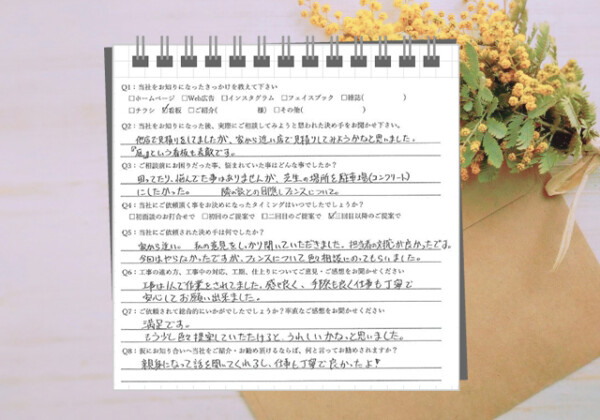 Q1：当社をお知りになったきっかけを教えて下さい
□ホームページ □Web広告 □インスタグラム □フェイスブック □雑誌( )
□チラシ ☑看板 □ご紹介( 様) □その他( )
Q2：当社をお知りになった後、実際にご相談してみようと思われた決め手をお聞かせ下さい。
他店で見積りをしてましたが、家から近い店で見積りしてみようかなと思いました。
『庭』という看板も素敵です。
Q3：ご相談前にお困りだった事、悩まれていた事はどんな事でしたか？
困ってたり、悩んでた事はありませんが、芝生の場所を駐車場(コンクリート)
にしたかった。 隣の家との目隠しフェンスについて。
Q4：当社にご依頼頂く事をお決めになったタイミングはいつでしたでしょうか？
□初面談のお打合せで □初回のご提案で □二回目のご提案で ☑三回目以降のご提案で
Q5：当社にご依頼された決め手は何でしたか？
家から近い。 私の意見をしっかり聞いていただきました。担当者の対応が良かったです。
今回はやらなかったですが、フェンスについて色々相談にのってもらいました。
Q6：工事の進め方、工事中の対応、工期、仕上りについてご意見・ご感想をお聞かせください
工事は1人で作業をされてました。感じ良く、手際も良く仕事も丁寧で
安心してお願い出来ました。
Q7：ご依頼されて総合的にいかがでしたでしょうか？率直なご感想をお聞かせください
満足です。
もう少し色々提案していただけると、うれしいかなっと思いました。
Q8：仮にお知り合いへ当社をご紹介・お勧め頂けるならば、何と言ってお勧めされますか？
親身になって話を聞いてくれるし、仕事も丁寧で良かったよ!